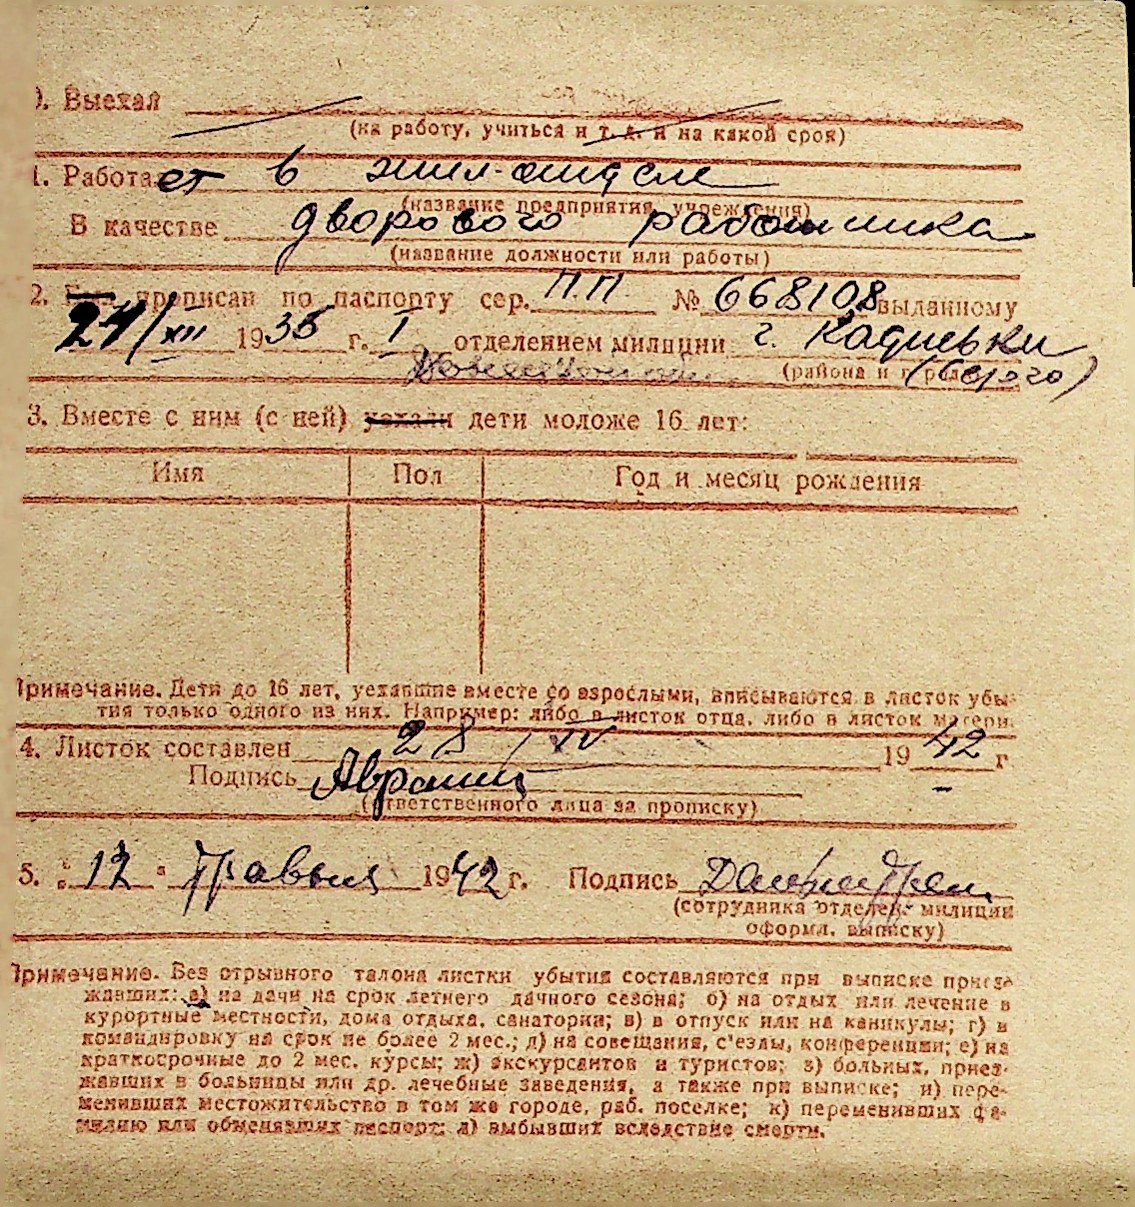 0. Выехал
(на работу, учиться и т. д. и на какой срок)
1. Работает в жил-отделе
(название предприятия, учреждения)
В качестве дворового работника
(название должности или работы)
2. Был прописан по паспорту сер. П.П. № 668108 выданному
27/XII 1935 г. I отделением милиции г. Кадиевки
(района и города)
3. Вместе с ним (с ней) уехали дети моложе 16 лет:
Имя Пол Год и месяц рождения
Примечание. Дети до 16 лет, уехавшие вместе со взрослыми, вписываются в листок убы-
тия только одного из них. Например: либо в листок отца, либо в листок матери.
4. Листок составлен 28 / IV 1942 г
Подпись
(ответственного лица за прописку)
5. " 12 " Травня 1942 г. Подпись
(сотрудника отделен. милиции
оформл. выписку)
Примечание. Без отрывного талона листки убытия составляются при выписке приез-
жавших: а) на дачи на срок летнего дачного сезона; б) на отдых или лечение в
курортные местности, дома отдыха, санатории; в) в отпуск или на каникулы; г) в
командировку на срок не более 2 мес.; д) на совещания, с'езды, конференции; е) на
краткосрочные до 2 мес. курсы; ж) экскурсантов и туристов; з) больных, приез-
жавших в больницы или др. лечебные заведения, а также при выписке; и) пере-
менивших местожительство в том же городе, раб. поселке; к) переменивших фа-
милию или обменявших паспорт; л) выбывших вследствие смерти.